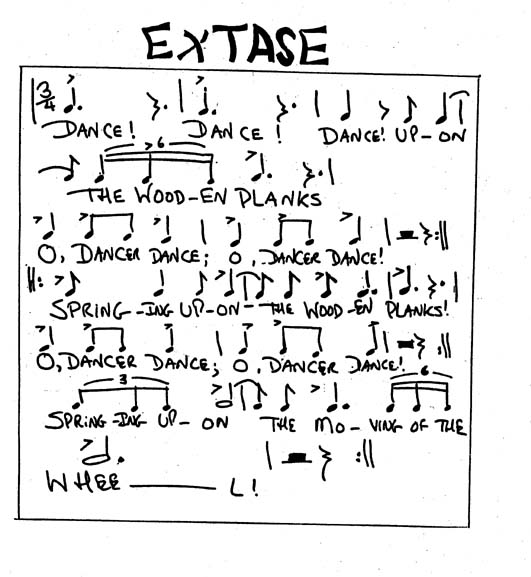 EXTASE
3/4
DANCE! DANCE! DANCE! UP-ON
6
THE WOOD-EN PLANKS
O, DANCER DANCE; O, DANCER DANCE!
SPRING--ING UP-ON- THE WOOD-EN PLANKS!
O, DANCER DANCE; O, DANCER DANCE!
3 6
SPRING-ING UP-ON THE MO-VING OF THE
WHEE L!